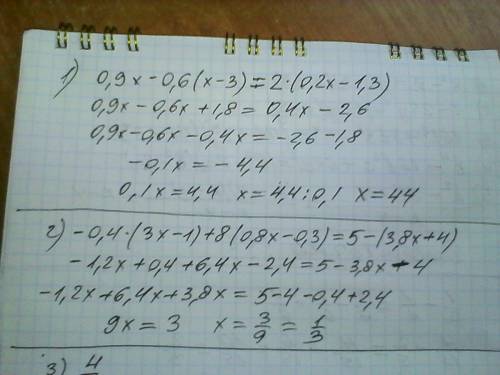 1) 0,9x - 0,6(x-3) = 2·(0,2x - 1,3)
0,9x - 0,6x + 1,8 = 0,4x - 2,6
0,9x - 0,6x - 0,4x = -2,6 - 1,8
-0,1x = -4,4
0,1x = 4,4 x = 4,4 : 0,1 x = 44
2) -0,4·(3x-1) + 8(0,8x - 0,3) = 5 - (3,8x + 4)
-1,2x + 0,4 + 6,4x - 2,4 = 5 - 3,8x - 4
-1,2x + 6,4x + 3,8x = 5 - 4 - 0,4 + 2,4
9x = 3 x = 3/9 = 1/3
3) 4